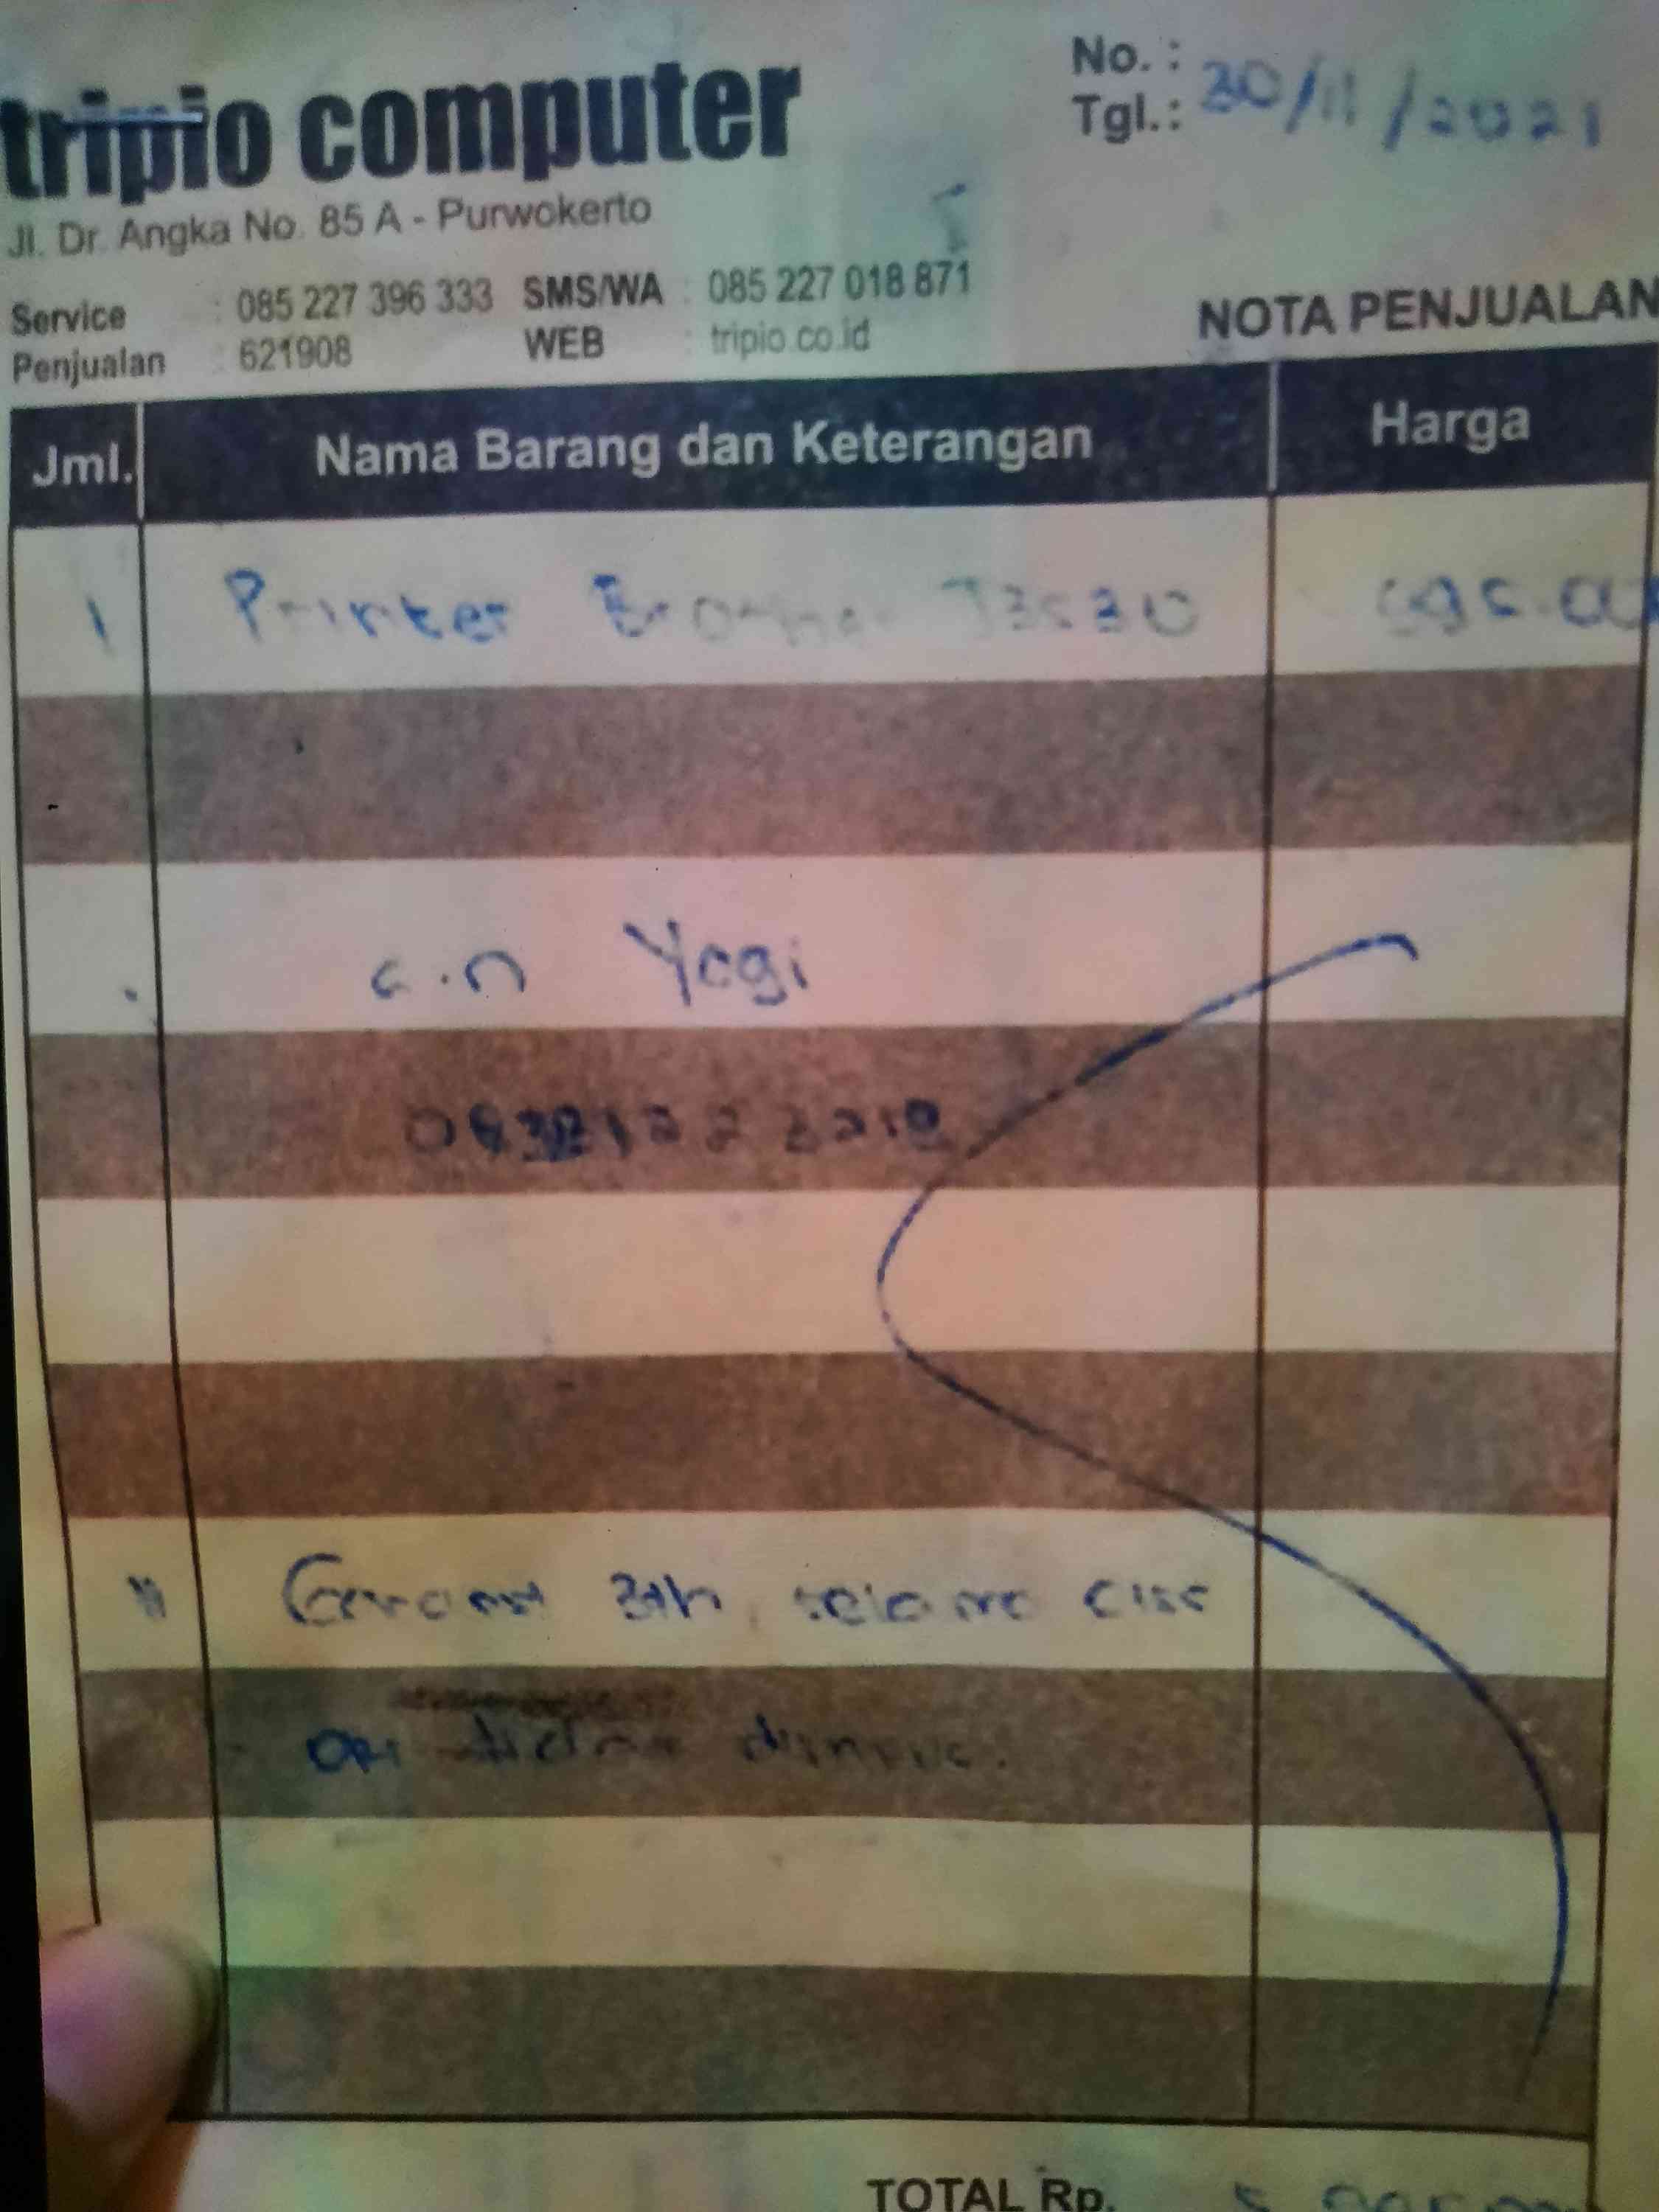 tripio computer
Jl. Dr. Angka No. 85 A - Purwokerto
No. :
Tgl. : 30/11/2021
Service : 085 227 396 333 SMS/WA : 085 227 018 871
Penjualan : 621908 WEB : tripio.co.id
NOTA PENJUALAN
Jml. Nama Barang dan Keterangan Harga
1 Printer Brother
a.n Yogi
Garansi 3th, selama
tidak
TOTAL Rp.